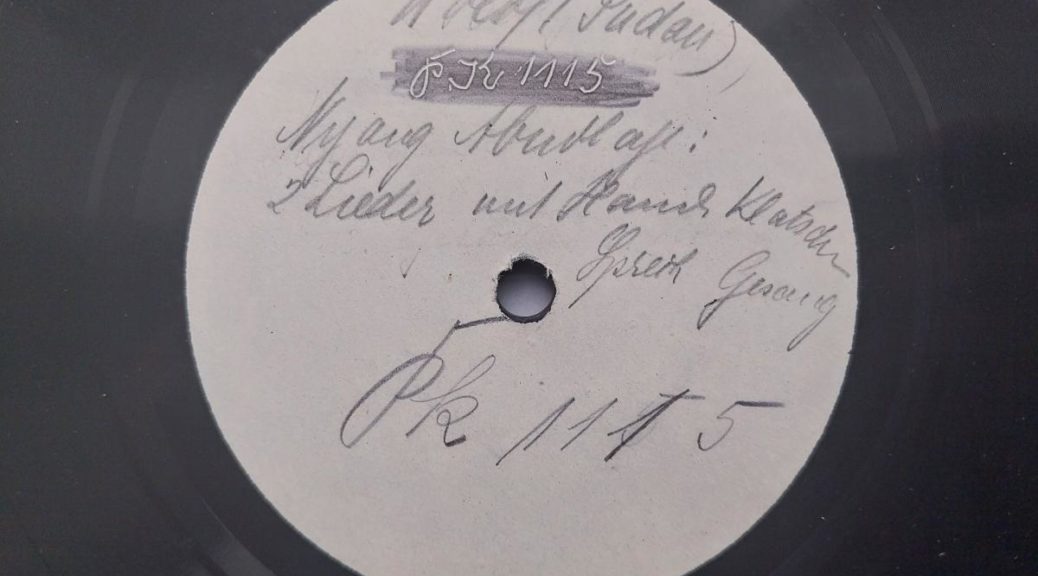 Wolof (Sudan)
PK 1115
Nyang Abdulaje:
2 Lieder mit Hand Klatschen
Sprech Gesang
Pk 1115